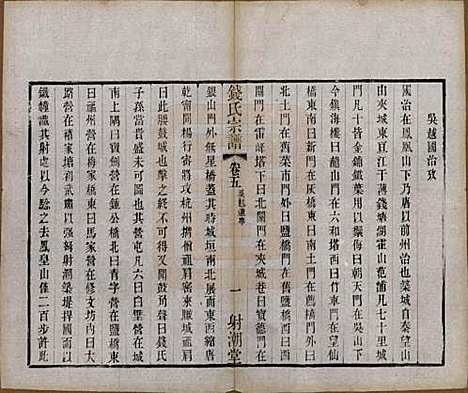 吳越國治攷
國治在鳳凰山下以前州治也築城自秦望山
由夾城東亘江干薄錢塘湖霍山范浦凡七十里城
門凡十皆金錦鐵葉用以禦侮曰朝天門在吳山下
今鎮海樓曰龍山門在六和塔西曰竹車門在望仙
橋東南曰新門在炭橋東曰南土門曰北土門曰鹽橋
門在舊菜市門外曰鹽橋門在舊鹽橋西曰西
關門在雷峰塔下曰北關門在夾城巷曰寶德門在
錢氏宗譜
卷五
吳越國攷
一
射潮堂
銀山門外無星橋蓋其時城垣南北展而東西縮唐
乾甯間楊行密將攻杭州攜僧祖肩來瞰城祖肩
曰此腰鼓城也擊之終不可得又聞鼓角聲曰錢氏
子孫當貴盛未可圖也其屯營凡六曰白璧營在城
南上隅曰寶劍營在鍾公橋北曰青字營在鹽橋東
曰福州營在梅家橋東曰馬家營在修文坊內曰大
路營在褚家塘以衛國也又嘗射潮築堤捍國以
鐵幢識其射處以今驗之去鳳皇山僅二百步許此